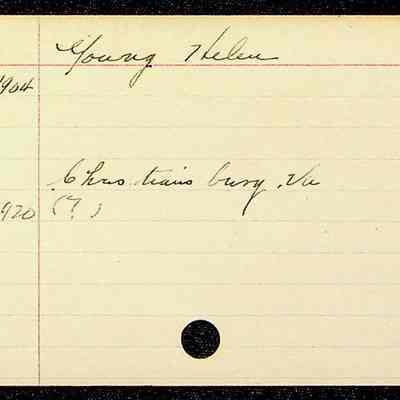 Young Helen
1904
Christiansburg, Va
1920 (?)